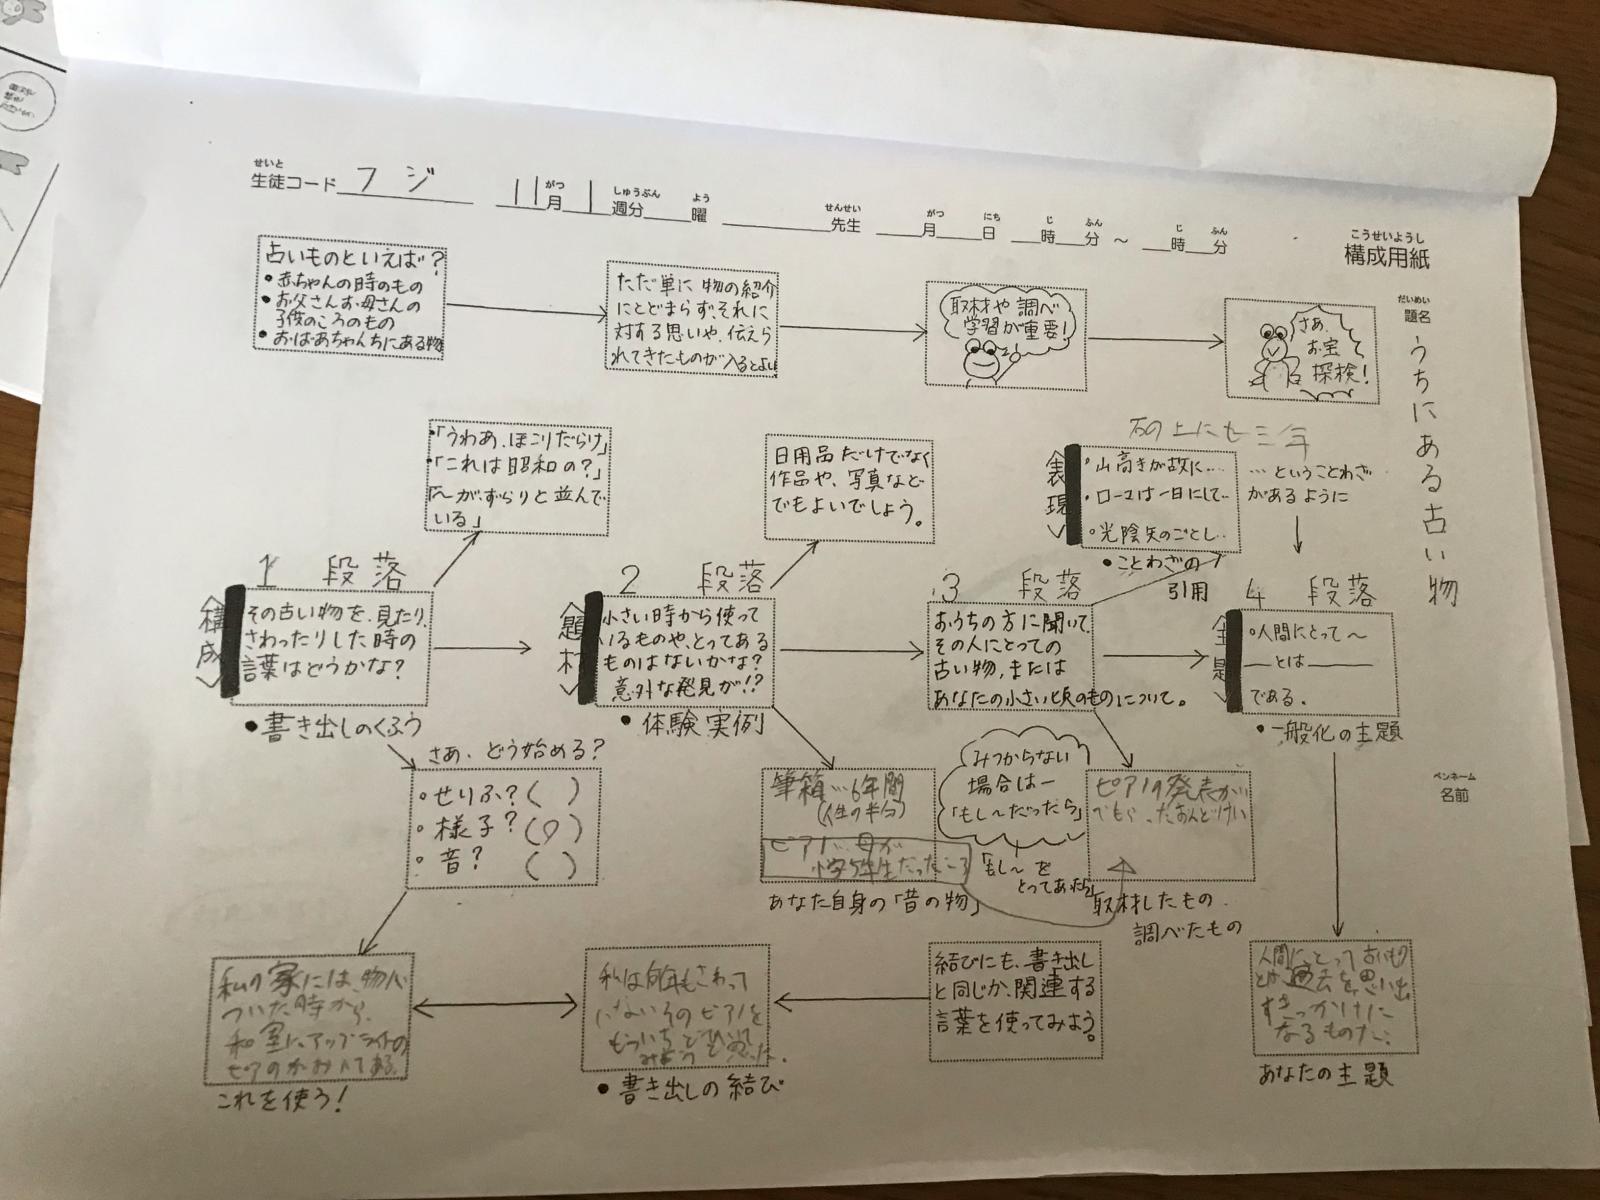 せいと
生徒コード フジ 11月 1週分 曜 先生 月 日 時 分 ～ 時 分
がつ しゅうぶん よう せんせい がつ にち じ ふん じ ふん
こうせいようし
構成用紙
だいめい
題名
うちにある古い物
古いものといえば？
・赤ちゃんの時のもの
・お父さんお母さんの
子供のころのもの
・おばあちゃんちにある物
ただ単に物の紹介
にとどまらず、それに
対する思いや、伝えら
れてきたものが入るとよい
取材や調べ
学習が重要！
さあ、
お宝
探検！
・「うわあ、ほこりだらけ」
・「これは昭和の？」
「～が、ずらりと並んで
いる」
日用品だけでなく
作品や、写真など
でもよいでしょう。
石の上にも三年
〈表現〉
・山高きが故に…
・ローマは一日にして…
・光陰矢のごとし…
…ということわざ
があるように
・ことわざの
引用
1 段落
〈構成〉
その古い物を、見たり、
さわったりした時の
言葉はどうかな？
・書き出しのくふう
2 段落
〈題材〉
小さい時から使って
いるものや、とってある
ものはないかな？
意外な発見が！？
・体験実例
3 段落
おうちの方に聞いて、
その人にとっての
古い物、または
あなたの小さい頃のものについて。
4 段落
〈主題〉
・人間にとって～
―とは―――
である。
・一般化の主題
さあ、どう始める？
・せりふ？（ ）
・様子？（○）
・音？（ ）
筆箱…6年間
(人生の半分)
ピアノ…母が
小学5年生だったころ
あなた自身の「昔の物」
みつからない
場合は―
「もし～だったら」
「もし～を
とってあたら」
ピアノの発表が
取材したもの
調べたもの
ペンネーム
名前
私の家には、物心
ついた時から、
和室にアップライトの
ピアノがおいてある。
これを使う！
私は何年もさわって
いないそのピアノを
もういちど
みようと思った。
・書き出しの結び
結びにも、書き出し
と同じか、関連する
言葉を使ってみよう。
人間にとって古いもの
とは過去を、思い出
すきっかけに
なるものだ。
あなたの主題